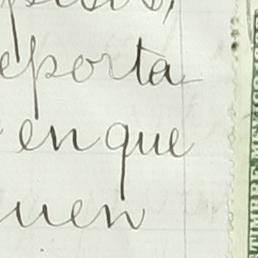 pesos,
eporta
en que
uen
TIMBRE MEXICO